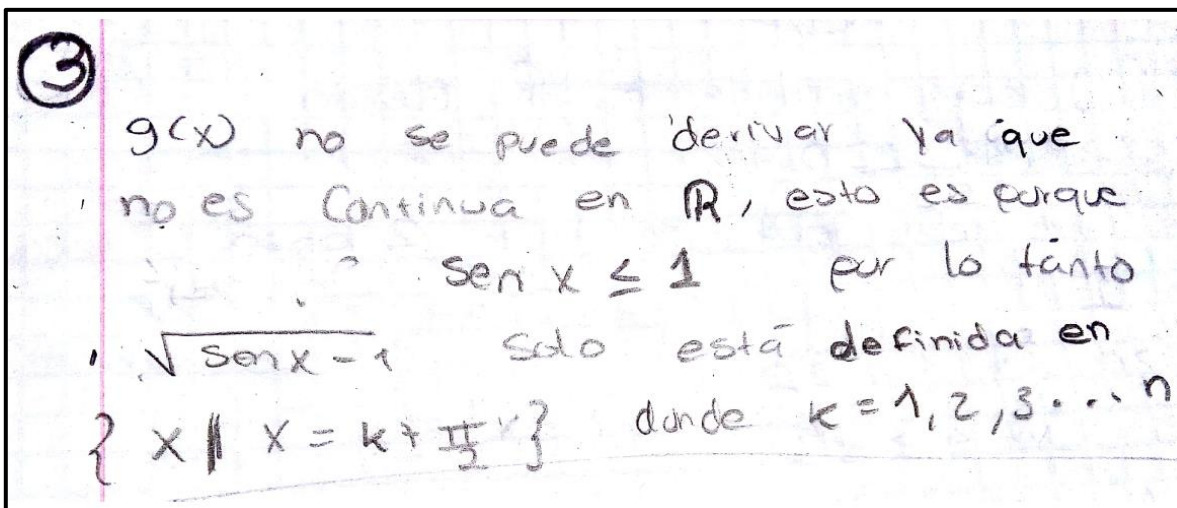 3
g(x) no se puede derivar ya que
no es Continua en ℝ, esto es porque
sen x ≤ 1 por lo tanto
√(sen x - 1) solo está definida en
{ x | x = k + π/2 } donde k = 1, 2, 3 ... n